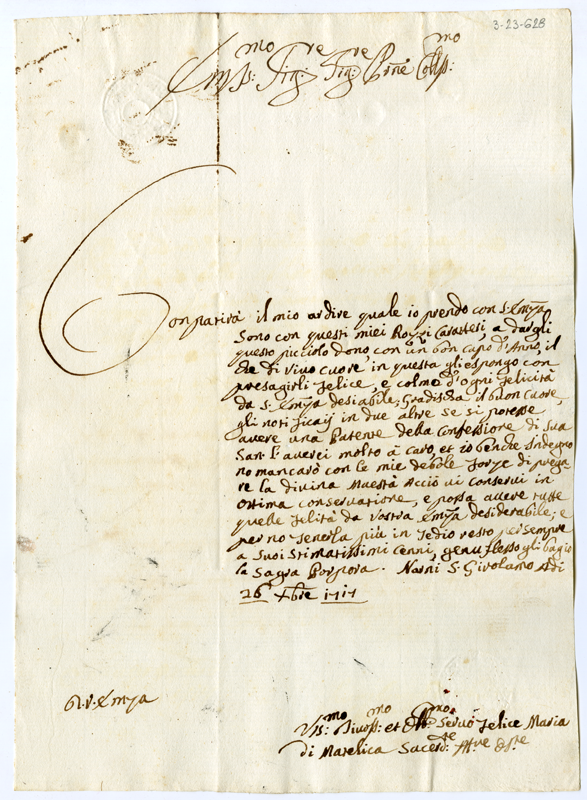 3-23-628
Em.mo Sig.re Sig.re P̃rne Coll.mo
Conpatirà il mio ardire quale io prendo con S. Em̃za
Sono con questi miei Rozzi Caratteri, a dargli
questo picciolo dono con un bon capo d'Anno, il
che di vivo cuore in questa gli espongo con
presagirli felice, e colmo d'ogni felicità
da S. Em̃za desiabile, Gradischa il buon cuore
gli noti ficaij in due altre se si potesse
avere una Patente della Confessione di Sua
San: l'averei molto à caro, et io benche Indegno
no mancarò con le mie debole forze di prega
re la divina Maestà Acciò vi conservi in
ottima conservatione, e possa avere tutte
quelle felità da Vostra Em̃za desiderabile; e
per no tenerla più in tedio resto per sempre
a Suoi Stimatissimi Cenni, genuflesso gli bagio
la Sagra Porpora. Narni S. Girolamo Adi
26 Xbre 1717
D. V. Em̃za
Um.mo Divot.mo et Obb.mo Servo Felice Maria
di Matelica Sacerd.te